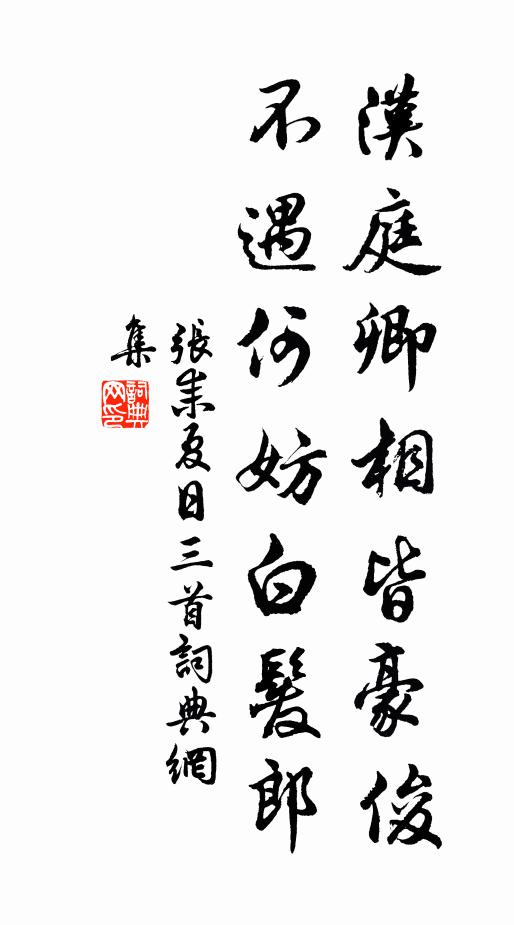 漢庭卿相皆豪俊
不遇何妨白髮郎
張耒夏日三首詞典網
集
詞典網印